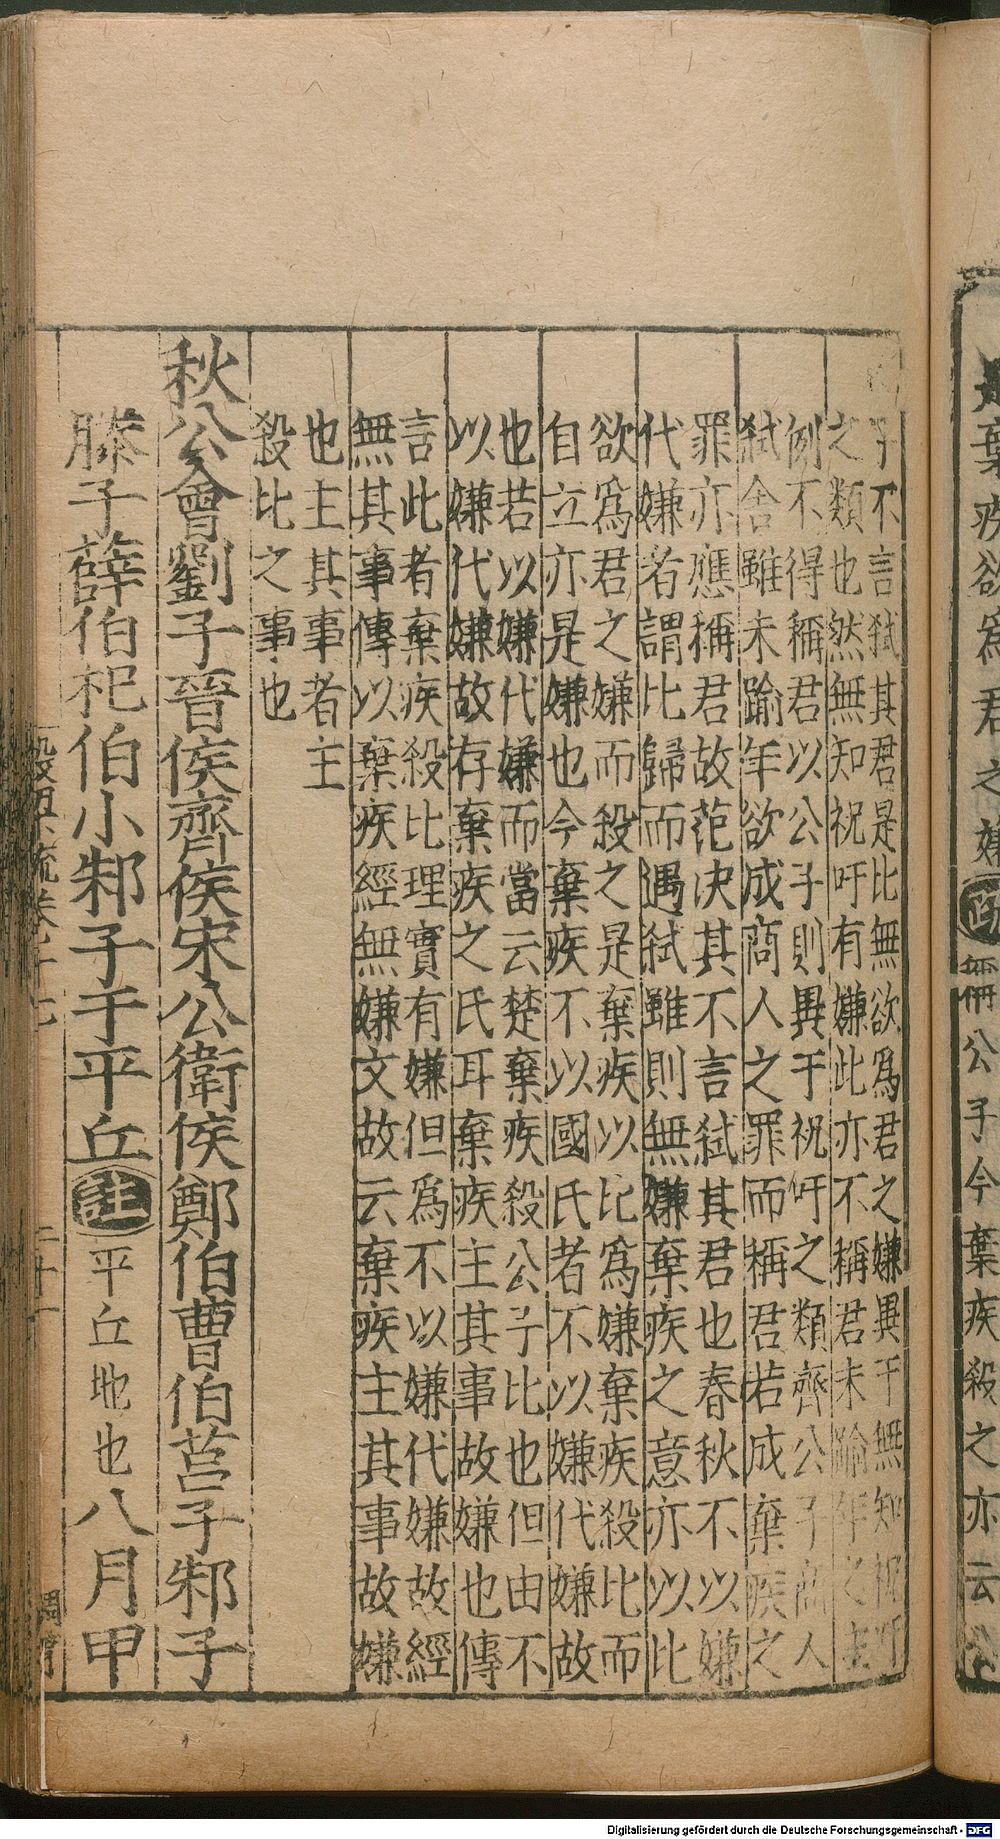 棄疾欲爲君之嫌疏
公子今棄疾殺之亦云公
子不言弒其君是比無欲爲君之嫌異于無知祝吁
之類也然無知祝吁有嫌此亦不稱君未踰年之主
例不得稱君以公子則異于祝吁之類齊公子商人
弒舍雖未踰年欲成商人之罪而稱君若成棄疾之
罪亦應稱君故范决其不言弒其君也春秋不以嫌
代嫌者謂比歸而遇弒雖則無嫌棄疾之意亦以比
欲爲君之嫌而殺之是棄疾以比爲嫌棄疾殺比而
自立亦是嫌也今棄疾不以國氏者不以嫌代嫌故
也若以嫌代嫌而當云楚棄疾殺公子比也但由不
以嫌代嫌故存棄疾之氏耳棄疾主其事故嫌也傳
言此者棄疾殺比理實有嫌但爲不以嫌代嫌故經
無其事傳以棄疾經無嫌文故云棄疾主其事故嫌
也主其事者主
殺比之事也
秋公會劉子晉侯齊侯宋公衛侯鄭伯曹伯莒子邾子
滕子薛伯杞伯小邾子于平丘註平丘地也八月甲
穀梁疏卷十七 二十一
Digitalisierung gefördert durch die Deutsche Forschungsgemeinschaft - DFG